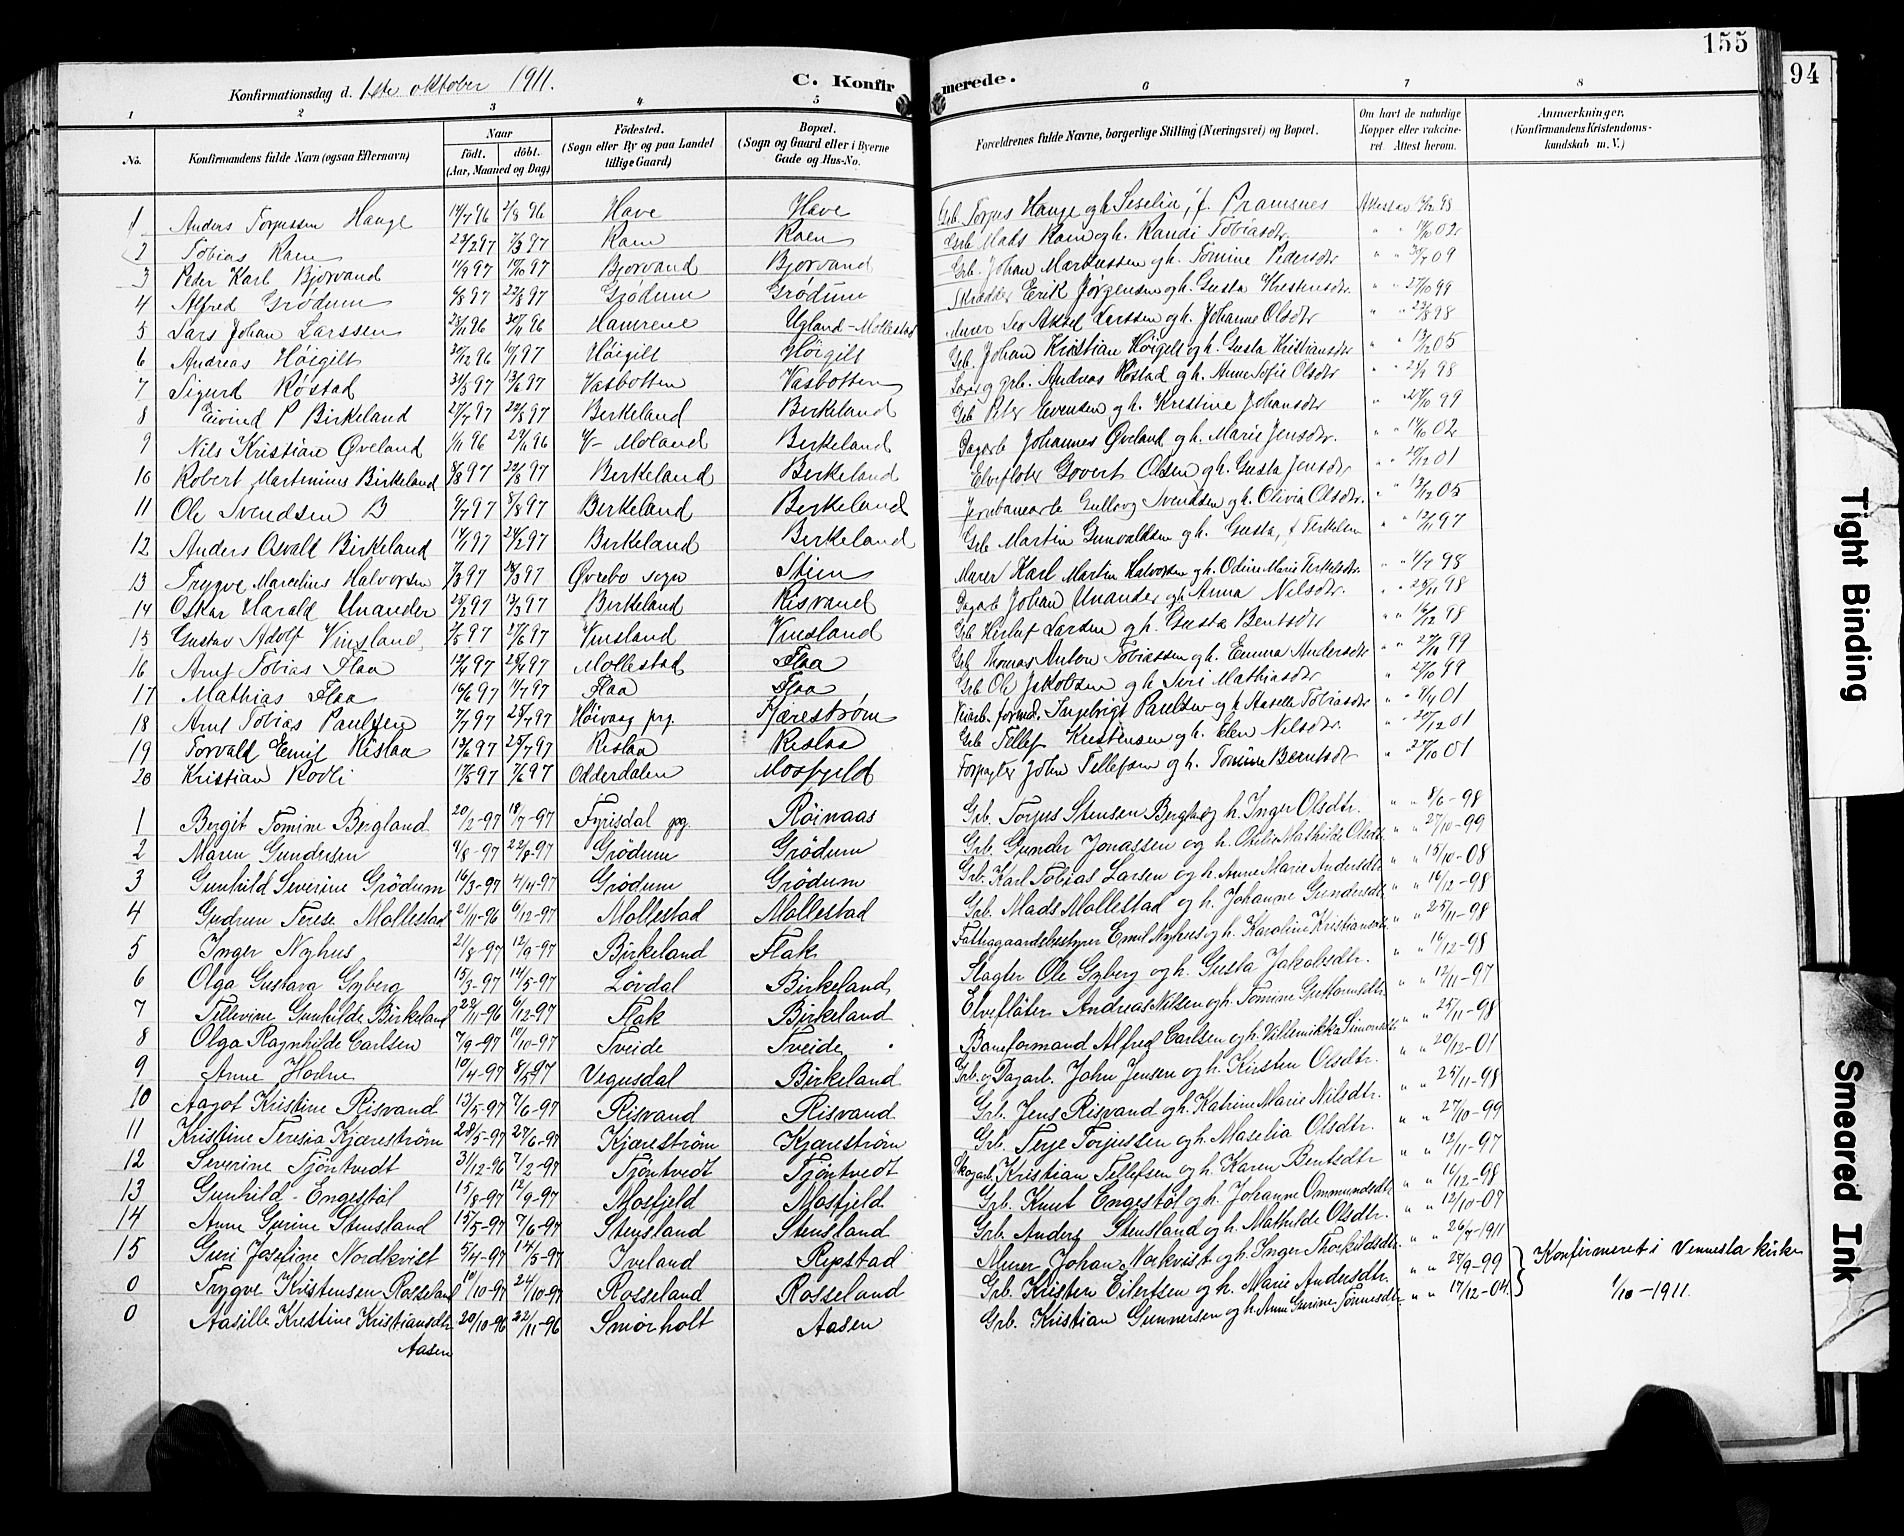 155
94
Konfirmationsdag d. 1ste oktober 1911.
C. Konfirmerede.
1 2 3 4 5 6 7 8
No. Konfirmandens fulde Navn (ogsaa Efternavn) Naar født. døbt. (Aar, Maaned og Dag) Fødested. (Sogn eller By og paa Landet tillige Gaard) Bopæl. (Sogn og Gaard eller i Byerne Gade og Hus-No. Forældrenes fulde Navne, borgerlige Stilling (Næringsvei) og Bopæl. Om havt de naturlige Kopper eller vaccineret. Attest herom. Anmærkninger. (Konfirmandens Kristendomskundskab m. V.)
1 Anders Torjussen Hauge 14/7 96 2/8 96 Have Have Grb. Torjus Hauge og h. Seselia, f. Pramsnes Attester 16/12 98
2 Tobias Raen 23/2 97 7/3 97 Raen Raen Grb. Mads Raen og h. Randi Tobiasdtr. " " 02
3 Peder Karl Bjorvand 97 97 Bjorvand Bjorvand Grb. Johan Markussen og h. Tomine Pedersdtr " " 09
4 Alfred Grødum 6/8 97 22/8 97 Grødum Grødum Skrædder Erik Jørgensen og h. Gusta Krestensdtr. " " 27/10 99
5 Lars Johan Larssen 96 96 Hamrene Ugland-Mollestad Murer Leo Aksel Larssen og h. Johanne Olsdtr " " 98
6 Andreas Høigilt 96 97 Høigilt Høigilt Grb. Johan Kristian Høigilt og h. Gusta Kristiansdtr " " 13/12 05
7 Sigurd Røstad 31/3 97 13/6 97 Vasbotten Vasbotten grb. Andreas Røstad og h. Anne Sofie Olsdtr " " 98
8 Eivind P Birkeland 27/7 97 97 Birkeland Birkeland Grb Peter Evensen og h. Kristine Johansdtr " " 99
9 Nils Kristian Øveland 1/11 96 29/11 96 V-Moland Birkeland Dagarb Johannes Øveland og h. Marie Jensdtr. " " 02
10 Robert Martinius Birkeland 97 97 Birkeland Birkeland Elvefløter Govert Olsen og h. Gusta Jensdtr " " 20/12 01
11 Ole Svendsen B 97 8/8 97 Birkeland Birkeland Jernbanearb Gullov Svendsen og h. Olivia Olsdtr. " " 13/12 05
12 Anders Osvald Birkeland 97 97 Birkeland Birkeland Grb Martin Gunvaldsen og h. Gusta, f Terkelsen " " 12/11 97
13 Trygve Marcelius Halvorsen 97 97 Øvrebo sogn Stien Murer Karl Martin Halvorsen og h. Odine Marie Terkelsdtr " " 98
14 Oskar Harald Unander 97 97 Birkeland Risvand Dagarb Johan Unander og h Anna Nilsdtr. " " 25/11 98
15 Gustav Adolf Vinsland 97 27/6 97 Vinsland Vinsland Grb Herluf Larsen og h. Gusta Bentsdtr " " 16/12 98
16 Arnt Tobias Flaa 97 97 Mollestad Flaa Grb Thomas Anton Tobiassen og h. Emma Andersdtr " " 27/10 99
17 Mathias Flaa 16/6 97 97 Flaa Flaa Grb Ole Jakobsen og h Siri Mathiasdtr " 27/10 99
18 Arnt Tobias Paulsen 7/7 97 25/7 97 Høivaag prg. Kjærestrøm formd. Ingebrigt Paulsen og h Aaselle Tobiasdtr " " 01
19 Torvald Emil Rislaa 13/6 97 25/7 97 Rislaa Rislaa Grb Tellef Kristensen og h. Elen Nilsdtr. " " 20/12 01
20 Kristian Rodli 17/5 97 7/6 97 Odderdalen Mosfjeld Forpagter John Tellefsen og h. Tomine Berntsdtr " " 27/10 01
1 Bergit Tomine Bergland 20/2-97 18/7-97 Fyrisdal pg. Røinaas Grb. Torjus Stensen Bergland og h. Inger Olsdtr. " " 8/6-98
2 Maren Gundersen 4/8-97 22/8-97 Grødum Grødum Grb. Gunder Jonassen og h. Othelie Mathilde Olsdtr. " " 27/10-99
3 Gunhild Severine Grødum 16/3-97 4/4-97 Grødum Grødum Grb. Karl Tobias Larsen og h. Anne Marie Andersdtr " " 15/10-08
4 Gudrun Terese Mollestad 21/11-96 6/12-97 Mollestad Mollestad Grb. Mads Mollestad og h. Johanne Gundersdtr " " 16/12-98
5 Inger Nyhus 21/8-97 12/9-97 Birkeland Flak Fattiggaardsbestyrer Emil Nyhus og h. Karoline Kristiansdtr " " 25/11-98
6 Olga Gustava Gyberg 15/3-97 14/5-97 Løvdal Birkeland Slagter Ole Gyberg og h. Gusta Jakobsdtr. " " 16/12-98
7 Tellevine Gunhilde Birkeland 22/11-96 6/12-97 Flak Birkeland Elvefløter Andreas Nilsen og h. Tomine Guttormsdtr " " 12/11-97
8 Olga Ragnhilde Carlsen 7/9-97 10/10-97 Tveide Tveide Baneformand Alfred Carlsen og h. Villemikka Simonsdtr " " 25/11-98
9 Anne Hodne 10/4-97 8/5 97 Vegusdal Birkeland Grb. og Dagarb. John Jensen og h. Kirsten Olsdtr. " " 20/12-01
10 Aagot Kristine Risvand 13/5-97 7/6-97 Risvand Risvand Grb. Jens Risvand og h. Katrine Marie Nilsdtr. " " 25/11-98
11 Kristine Teresia Kjærestrøm 28/5-97 27/6-97 Kjærestrøm Kjærestrøm Grb. Terje Torjussen og h. Maselia Olsdtr. " " 27/10-99
12 Severine Tjöntvedt 31/12-96 7/2-97 Tjöntvedt Tjöntvedt Skogarb. Kristian Tellefsen og h. Karen Bentsdtr " " 12/11-97
13 Gunhild Engestøl 15/8-97 12/9-97 Mosfjeld Mosfjeld Grb. Knut Engestøl og h. Johanne Ommundsdtr " " 16/12-98
14 Anne Gurine Stensland 15/5-97 7/6-97 Stensland Stensland Grb. Anders Stensland og h. Mathilde Olsdtr. " " 12/10-07
15 Guri Josefine Nordkvist 5/4-97 14/5-97 Iveland Repstad Murer Johan Norkvist og h. Inger Thorkildsdtr. " " 26/7-1911
0 Trygve Kristensen Rosseland 10/10-97 24/10-97 Rosseland Rosseland Grb. Kristen Eilertsen og h. Marie Andersdtr. " " 29/9-99 Konfirmeret i Vennesla kirke
0 Aasille Kristine Kristiansdtr Aasen 20/10-96 22/11-96 Smorholt Aasen Grb. Kristian Gunnersen og h. Anne Gurine Tønnesdtr. " " 17/12-04 1/10-1911.
Tight Binding
Smeared Ink